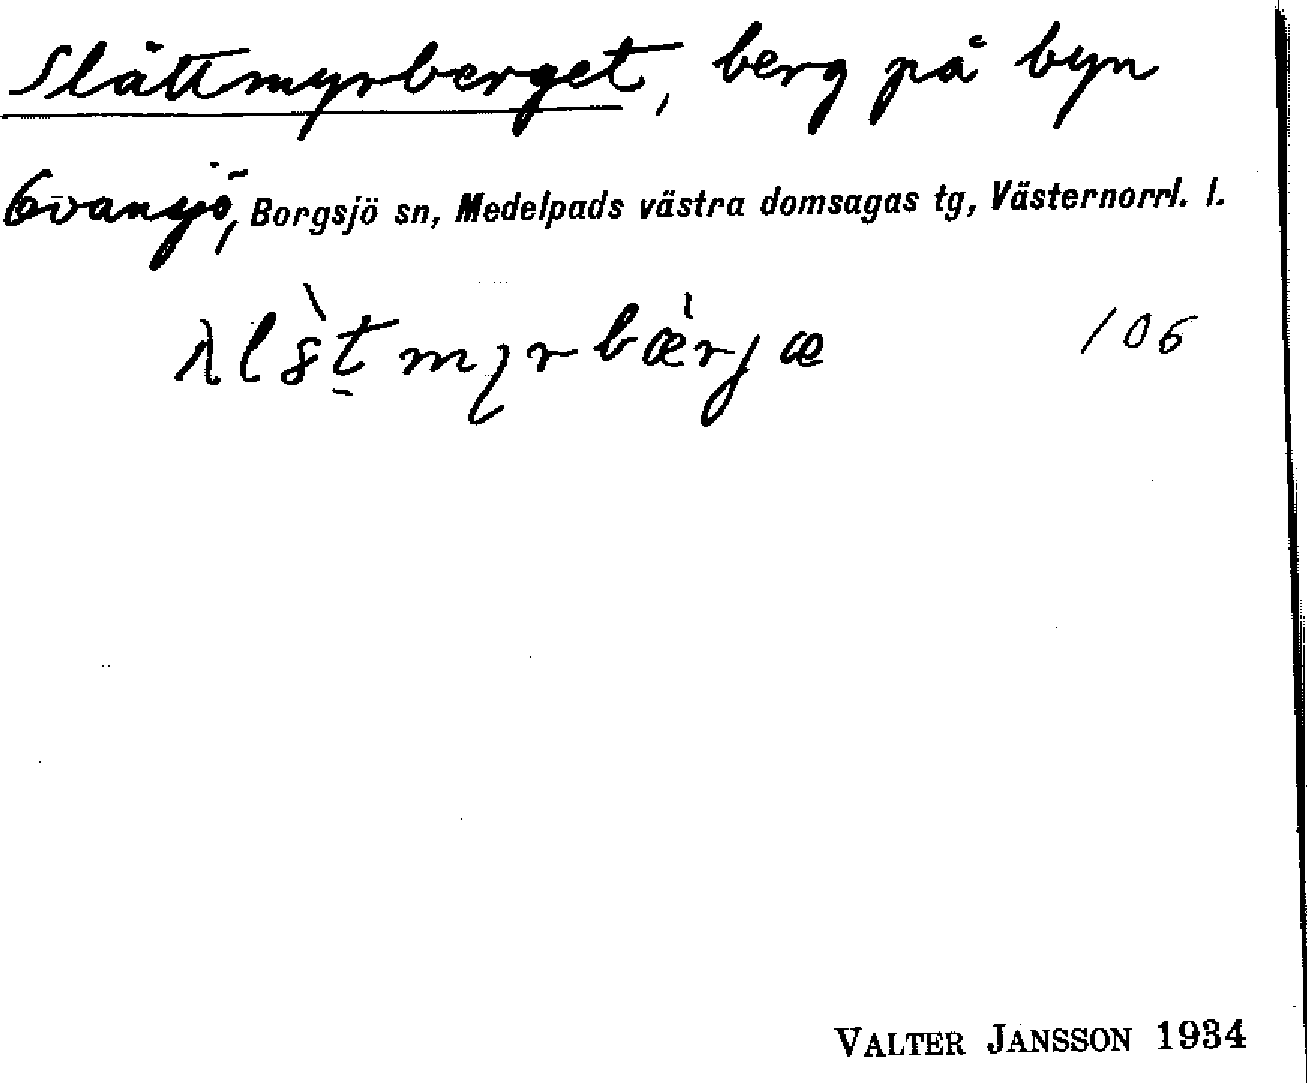 Slättmyrberget, berg på byn
Ovansjö, Borgsjö sn, Medelpads västra domsagas tg, Västernorrl. l.
106
VALTER JANSSON 1934